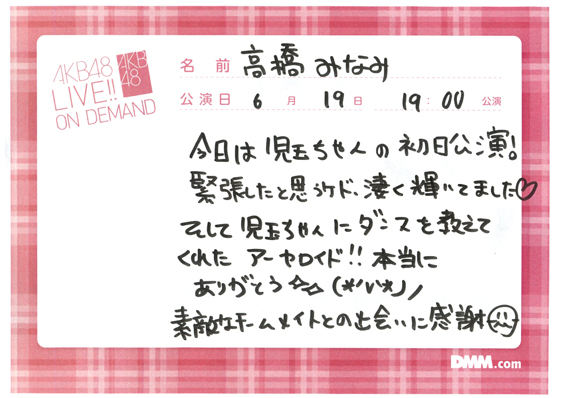 AKB48
LIVE!!
ON DEMAND
AKB
48
名前 高橋みなみ
公演日 6月19日 19:00公演
今日は児玉ちゃんの初日公演!
緊張したと思うケド、凄く輝いてました♡
そして児玉ちゃんにダンスを教えて
くれた アーヤロイド!!本当に
ありがとう☆☆(*'v'*)ノ
素敵なチームメイトとの出会いに感謝
DMM.com